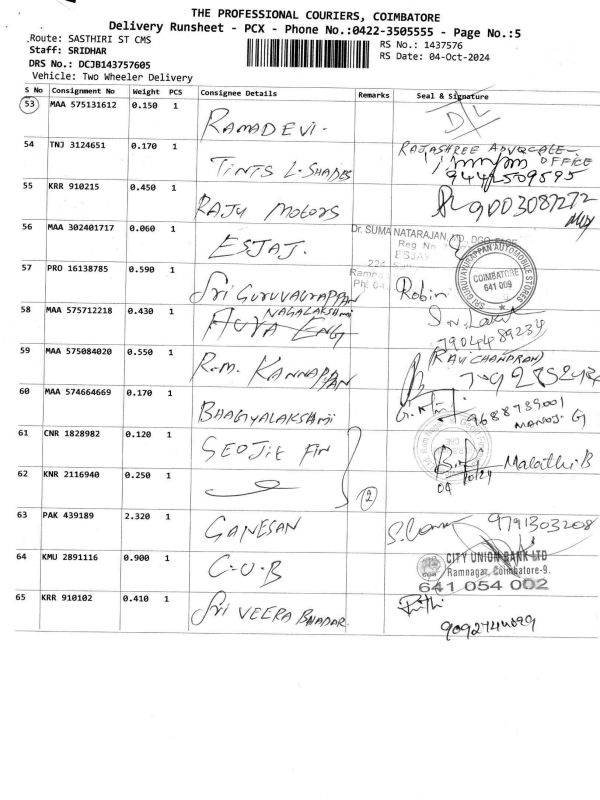 THE PROFESSIONAL COURIERS, COIMBATORE
Delivery Runsheet - PCX - Phone No.:0422-3505555 - Page No.:5
Route: SASTHIRI ST CMS
RS No.: 1437576
Staff: SRIDHAR
RS Date: 04-Oct-2024
DRS No.: DCJB143757605
Vehicle: Two Wheeler Delivery
S No Consignment No Weight PCS Consignee Details Remarks Seal & Signature
53 MAA 575131612 0.150 1 RAMADEVI. D/L
54 TNJ 3124651 0.170 1 TINTS L. SHADES RAJASHREE ADVOCATE
OFFICE
9442509595
55 KRR 910215 0.450 1 RAJU MOTORS 9003087272
56 MAA 302401717 0.060 1 ESJAJ. Dr. SUMA NATARAJAN, MD., DGO,
Reg No
ESJAY
57 PRO 16138785 0.590 1 Sri GURUVAYRAPPAN Robin
SRI GURUVAYURAPPAN AUTOMOBILE STORES
COIMBATORE
641 009
58 MAA 575712218 0.430 1 NAGALAKSHMI
ENG
7904489234
59 MAA 575084020 0.550 1 R.M. KANNAPPAN RAVICHANDRAN
60 MAA 574664669 0.170 1 BHAGYALAKSHMI 9688739001
MANOJ. G
61 CNR 1828982 0.120 1 GEOJIT FIN
Malathi B
04/10/24
62 KNR 2116940 0.250 1
2
63 PAK 439189 2.320 1 GANESAN 9791303208
64 KMU 2891116 0.900 1 C.U.B CITY UNION BANK LTD
Ramnagar, Coimbatore-9.
641 054 002
65 KRR 910102 0.410 1 Sri VEERA BHADAR.